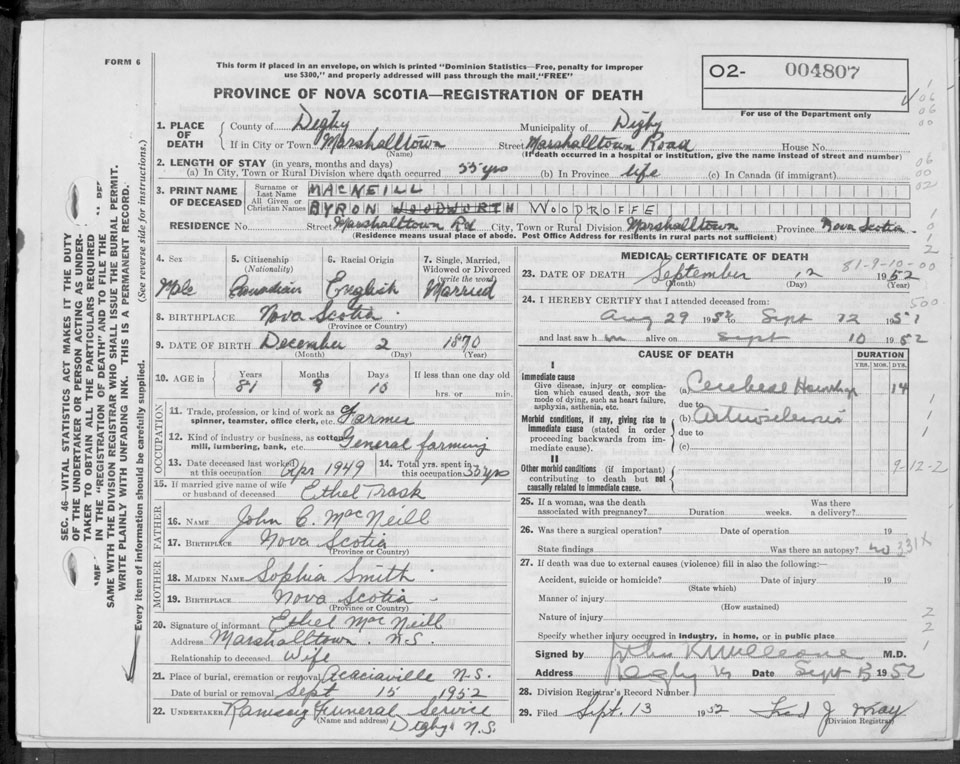 FORM 6
This form if placed in an envelope, on which is printed "Dominion Statistics—Free, penalty for improper
use $300," and properly addressed will pass through the mail "FREE"
PROVINCE OF NOVA SCOTIA—REGISTRATION OF DEATH
O2- 004807
For use of the Department only
1. PLACE OF DEATH
County of Digby Municipality of Digby
If in City or Town Marshalltown Street Marshalltown Road House No.
(Name) (If death occurred in a hospital or institution, give the name instead of street and number)
2. LENGTH OF STAY (in years, months and days)
(a) In City, Town or Rural Division where death occurred 55 yrs (b) In Province life (c) In Canada (if immigrant)
3. PRINT NAME OF DECEASED
Surname or Last Name MACNEILL
All Given or Christian Names BYRON WOODWORTH WOODROFFE
RESIDENCE No. Street Marshalltown Rd City, Town or Rural Division Marshalltown Province Nova Scotia
(Residence means usual place of abode. Post Office Address for residents in rural parts not sufficient)
4. Sex Male
5. Citizenship (Nationality) Canadian
6. Racial Origin English
7. Single, Married, Widowed or Divorced (write the word) Married
8. BIRTHPLACE Nova Scotia
(Province or Country)
9. DATE OF BIRTH December 2 1870
(Month) (Day) (Year)
10. AGE in Years Months Days If less than one day old
81 9 10 hrs. or min.
OCCUPATION
11. Trade, profession, or kind of work as spinner, teamster, office clerk, etc. Farmer
12. Kind of industry or business, as cotton mill, lumbering, bank, etc. General farming
13. Date deceased last worked at this occupation Apr 1949
14. Total yrs. spent in this occupation 55 yrs
15. If married give name of wife or husband of deceased Ethel Trask
FATHER
16. NAME John C. MacNeill
17. BIRTHPLACE Nova Scotia
(Province or Country)
MOTHER
18. MAIDEN NAME Sophia Smith
19. BIRTHPLACE Nova Scotia
(Province or Country)
20. Signature of informant Ethel MacNeill
Address Marshalltown. N.S.
Relationship to deceased Wife
21. Place of burial, cremation or removal Acaciaville N.S.
Date of burial or removal Sept 15 1952
22. UNDERTAKER Ramsey Funeral Service
(Name and address) Digby. N.S.
MEDICAL CERTIFICATE OF DEATH
81-9-10-00
23. DATE OF DEATH September 12 1952
(Month) (Day) (Year)
24. I HEREBY CERTIFY that I attended deceased from:
500
Aug 29 1952 to Sept 12 1951
and last saw him alive on Sept 10 1952
CAUSE OF DEATH DURATION
YRS. MOS. DYS.
I
Immediate cause
Give disease, injury or complication which caused death, NOT the mode of dying, such as heart failure, asphyxia, asthenia, etc.
(a) 14
due to
Morbid conditions, if any, giving rise to immediate cause (stated in order proceeding backwards from immediate cause).
(b)
due to
(c)
II
Other morbid conditions (if important) contributing to death but not causally related to immediate cause.
9-12-2
25. If a woman, was the death associated with pregnancy? Duration weeks. Was there a delivery?
26. Was there a surgical operation? Date of operation 19
State findings Was there an autopsy? no 331X
27. If death was due to external causes (violence) fill in also the following:—
Accident, suicide or homicide? Date of injury 19
(State which)
Manner of injury
(How sustained)
Nature of injury
Specify whether injury occurred in industry, in home, or in public place
Signed by John M.D.
Address Digby Date Sept 1952
28. Division Registrar's Record Number
29. Filed Sept. 13 1952 Fred J Wray
(Division Registrar)
SEC. 46—VITAL STATISTICS ACT MAKES IT THE DUTY
OF THE UNDERTAKER OR PERSON ACTING AS UNDER-
TAKER TO OBTAIN ALL THE PARTICULARS REQUIRED
IN THE "REGISTRATION OF DEATH" AND TO FILE THE
SAME WITH THE DIVISION REGISTRAR WHO SHALL ISSUE THE BURIAL PERMIT.
WRITE PLAINLY WITH UNFADING INK. THIS IS A PERMANENT RECORD.
Every item of information should be carefully supplied. (See reverse side for instructions.)